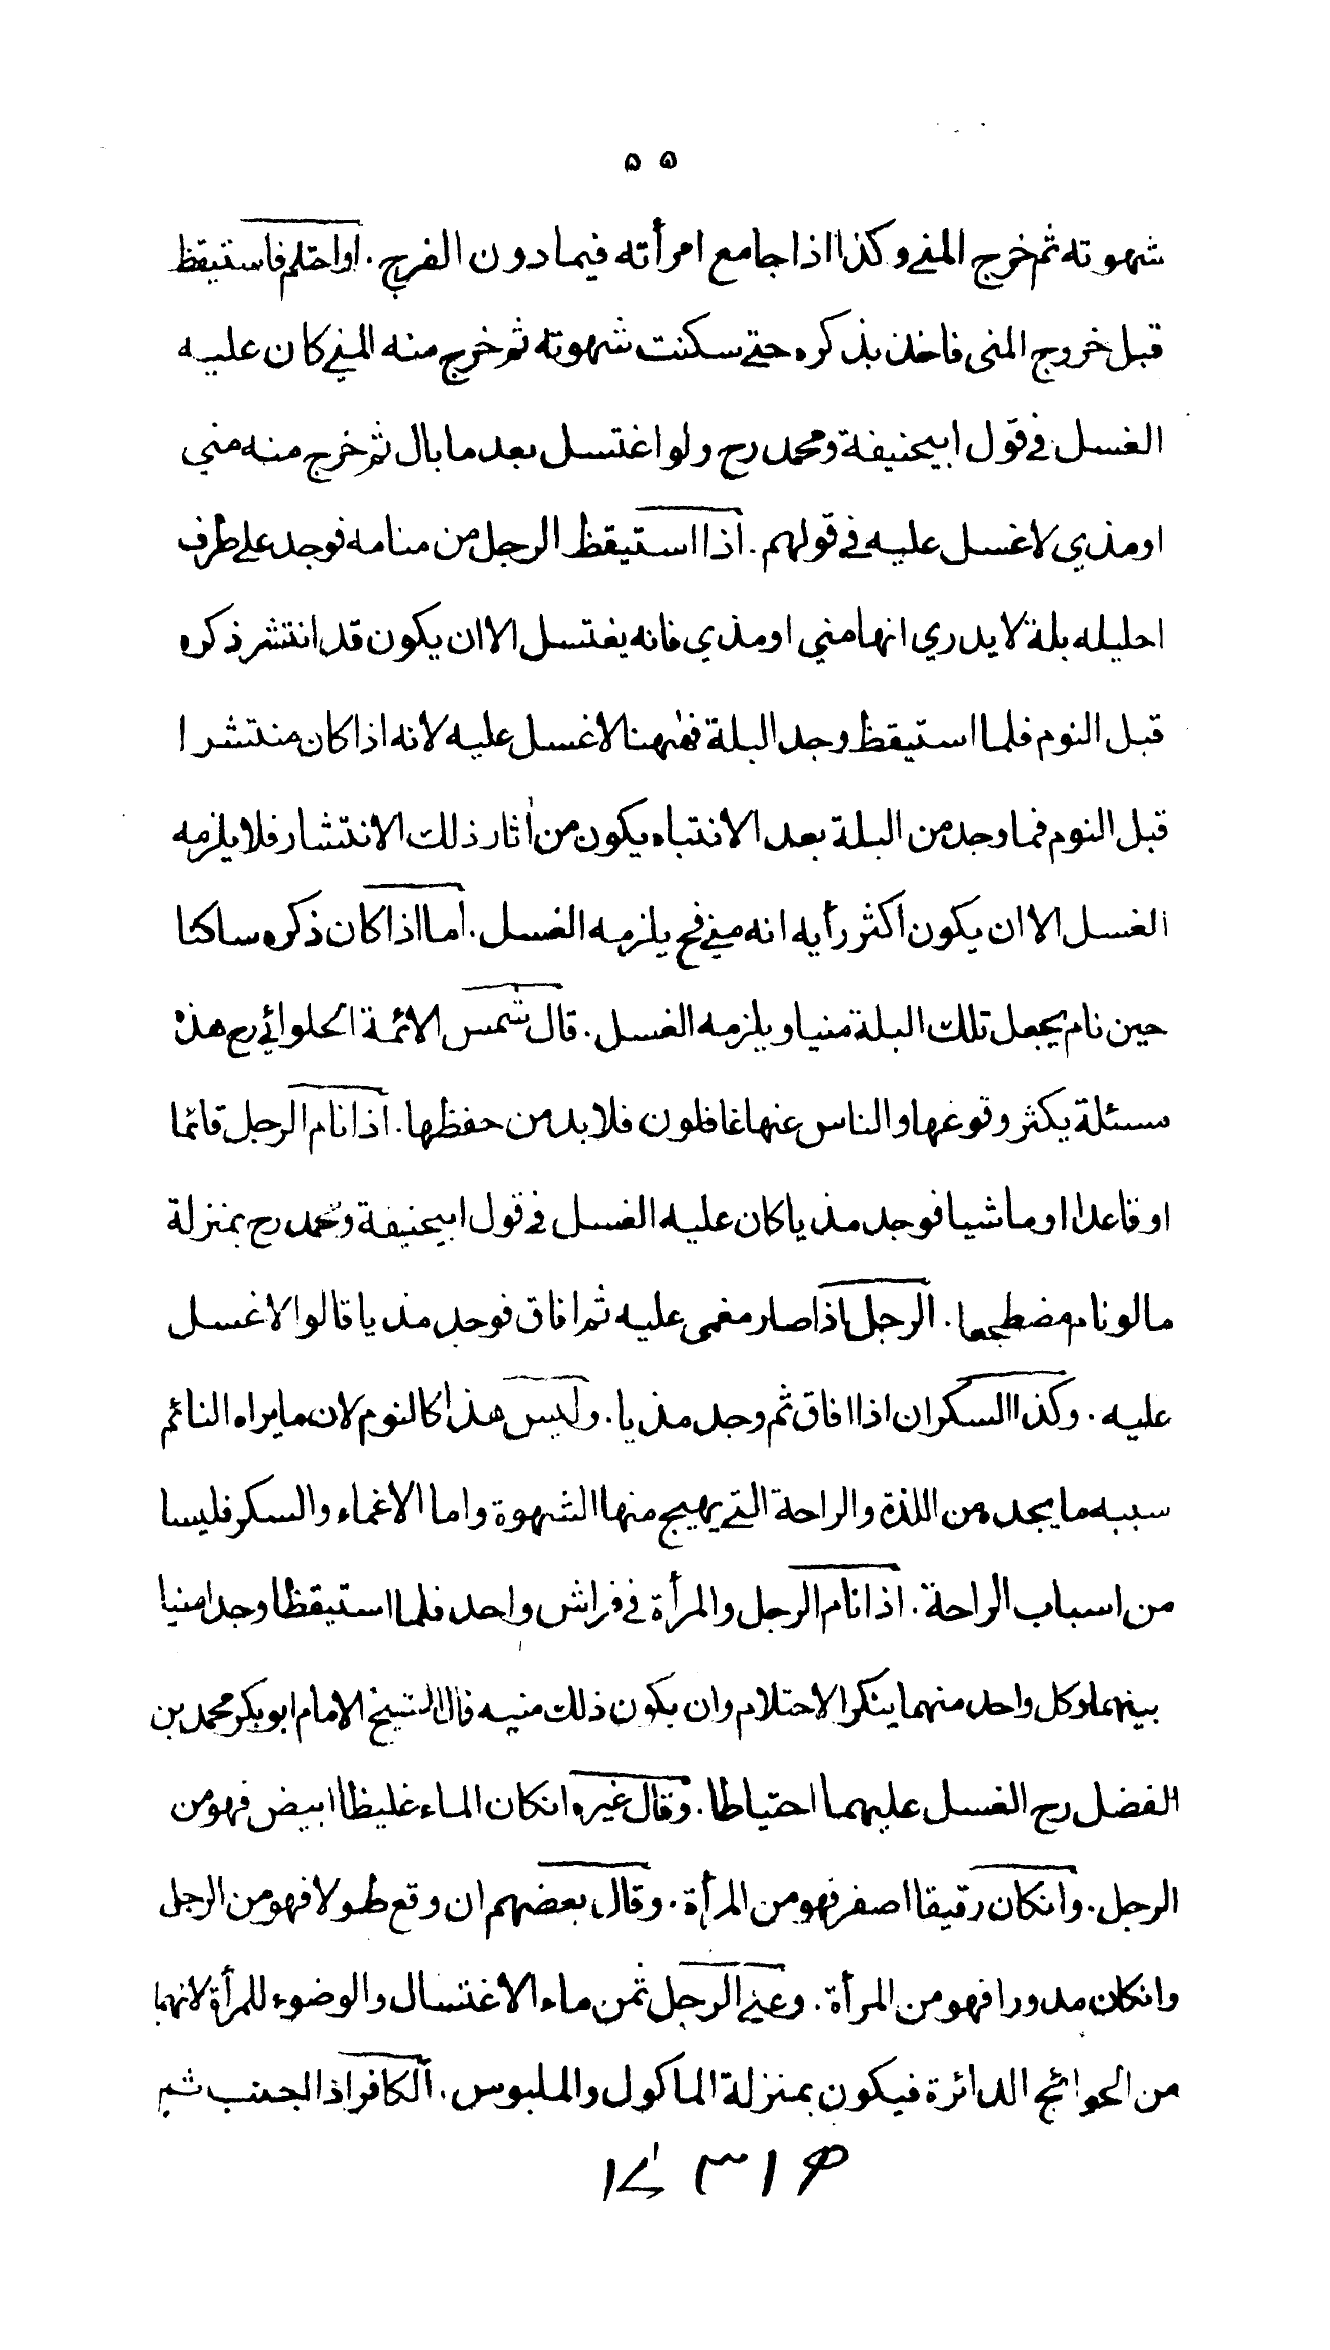 ۵۵
شهوته ثم خرج المني وكذا اذا جامع امرأته فيما دون الفرج . او احتلم فاستيقظ
قبل خروج المنى فاخذ بذكره حتى سكنت شهوته ثم خرج منه المني كان عليه
الغسل في قول ابيحنيفة ومحمد رح ولو اغتسل بعد ما بال ثم خرج منه مني
او مذي لا غسل عليه في قولهم . اذا استيقظ الرجل من منامه فوجد على طرف
احليله بلة لا يدري انها مني او مذي فانه يغتسل الا ان يكون قد انتشر ذكره
قبل النوم فلما استيقظ وجد البلة فههنا لا غسل عليه لانه اذا كان منتشرا
قبل النوم فما وجد من البلة بعد الانتباه يكون من اثار ذلك الانتشار فلا يلزمه
الغسل الا ان يكون اكثر رأيه انه مني فح يلزمه الغسل . اما اذا كان ذكره ساكنا
حين نام يجعل تلك البلة منيا ويلزمه الغسل . قال شمس الائمة الحلوائي رح هذه
مسئلة يكثر وقوعها والناس عنها غافلون فلا بد من حفظها . اذا نام الرجل قائما
او قاعدا او ماشيا فوجد مذيا كان عليه الغسل في قول ابيحنيفة ومحمد رح بمنزلة
ما لو نام مضطجعا . الرجل اذا صار مغمى عليه ثم افاق فوجد مذيا قالوا لا غسل
عليه . وكذا السكران اذا افاق ثم وجد مذيا . وليس هذا كالنوم لان ما يراه النائم
سببه ما يجده من اللذة والراحة التي يهيج منها الشهوة واما الاغماء والسكر فليسا
من اسباب الراحة . اذا نام الرجل والمرأة في فراش واحد فلما استيقظا وجدا منيا
بينهما وكل واحد منهما ينكر الاحتلام وان يكون ذلك منيه قال الشيخ الامام ابو بكر محمد بن
الفضل رح الغسل عليهما احتياطا . وقال غيره انكان الماء غليظا ابيض فهو من
الرجل . وانكان رقيقا اصفر فهو من المرأة . وقال بعضهم ان وقع طولا فهو من الرجل
وانكان مدورا فهو من المرأة . وعلى الرجل ثمن ماء الاغتسال والوضوء للمرأة لانهما
من الحوائج الدائرة فيكون بمنزلة الماكول والملبوس . الكافر اذا اجنب ثم